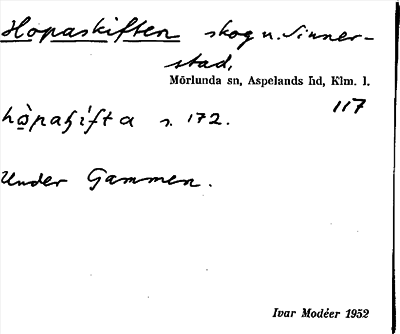 Hopaskiften skog u. Sinner-
stad,
Mörlunda sn, Aspelands hd, Klm. l.
117
s. 172.
Under Gammen.
Ivar Modéer 1952